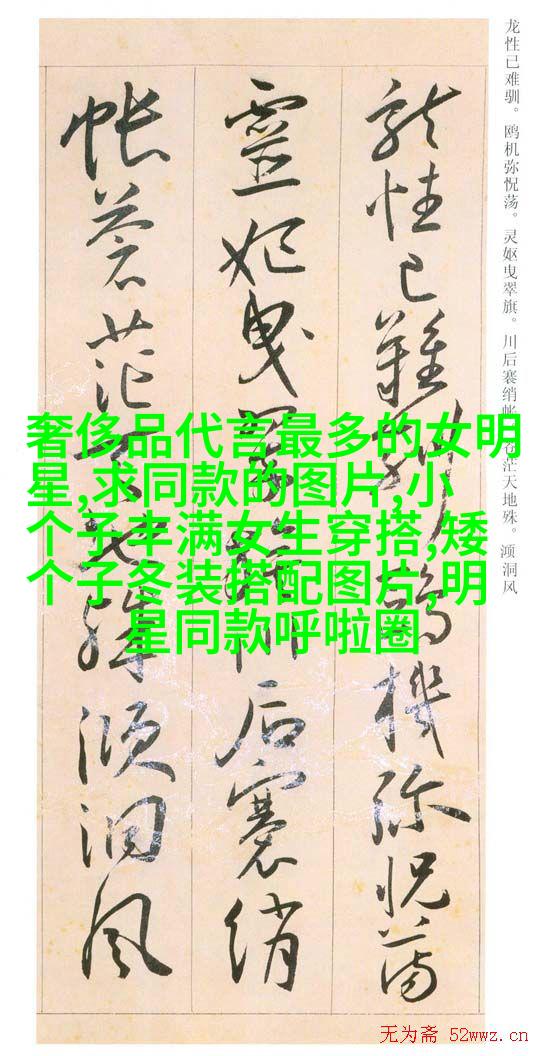 龙性已难驯。鸥机弥怳荡。灵妪曳翠旗。川后褰绡帐。苍茫天地殊。澒洞风
龍性已難馴鷗機弥怳蕩
靈妃曳翠旂川后褰綃
帳蒼茫天地殊澒洞風
奢侈品代言最多的女明
星,求同款的图片,小
个子丰满女生穿搭,矮
个子冬装搭配图片,明
星同款呼啦圈
无为斋 52wwz.cn